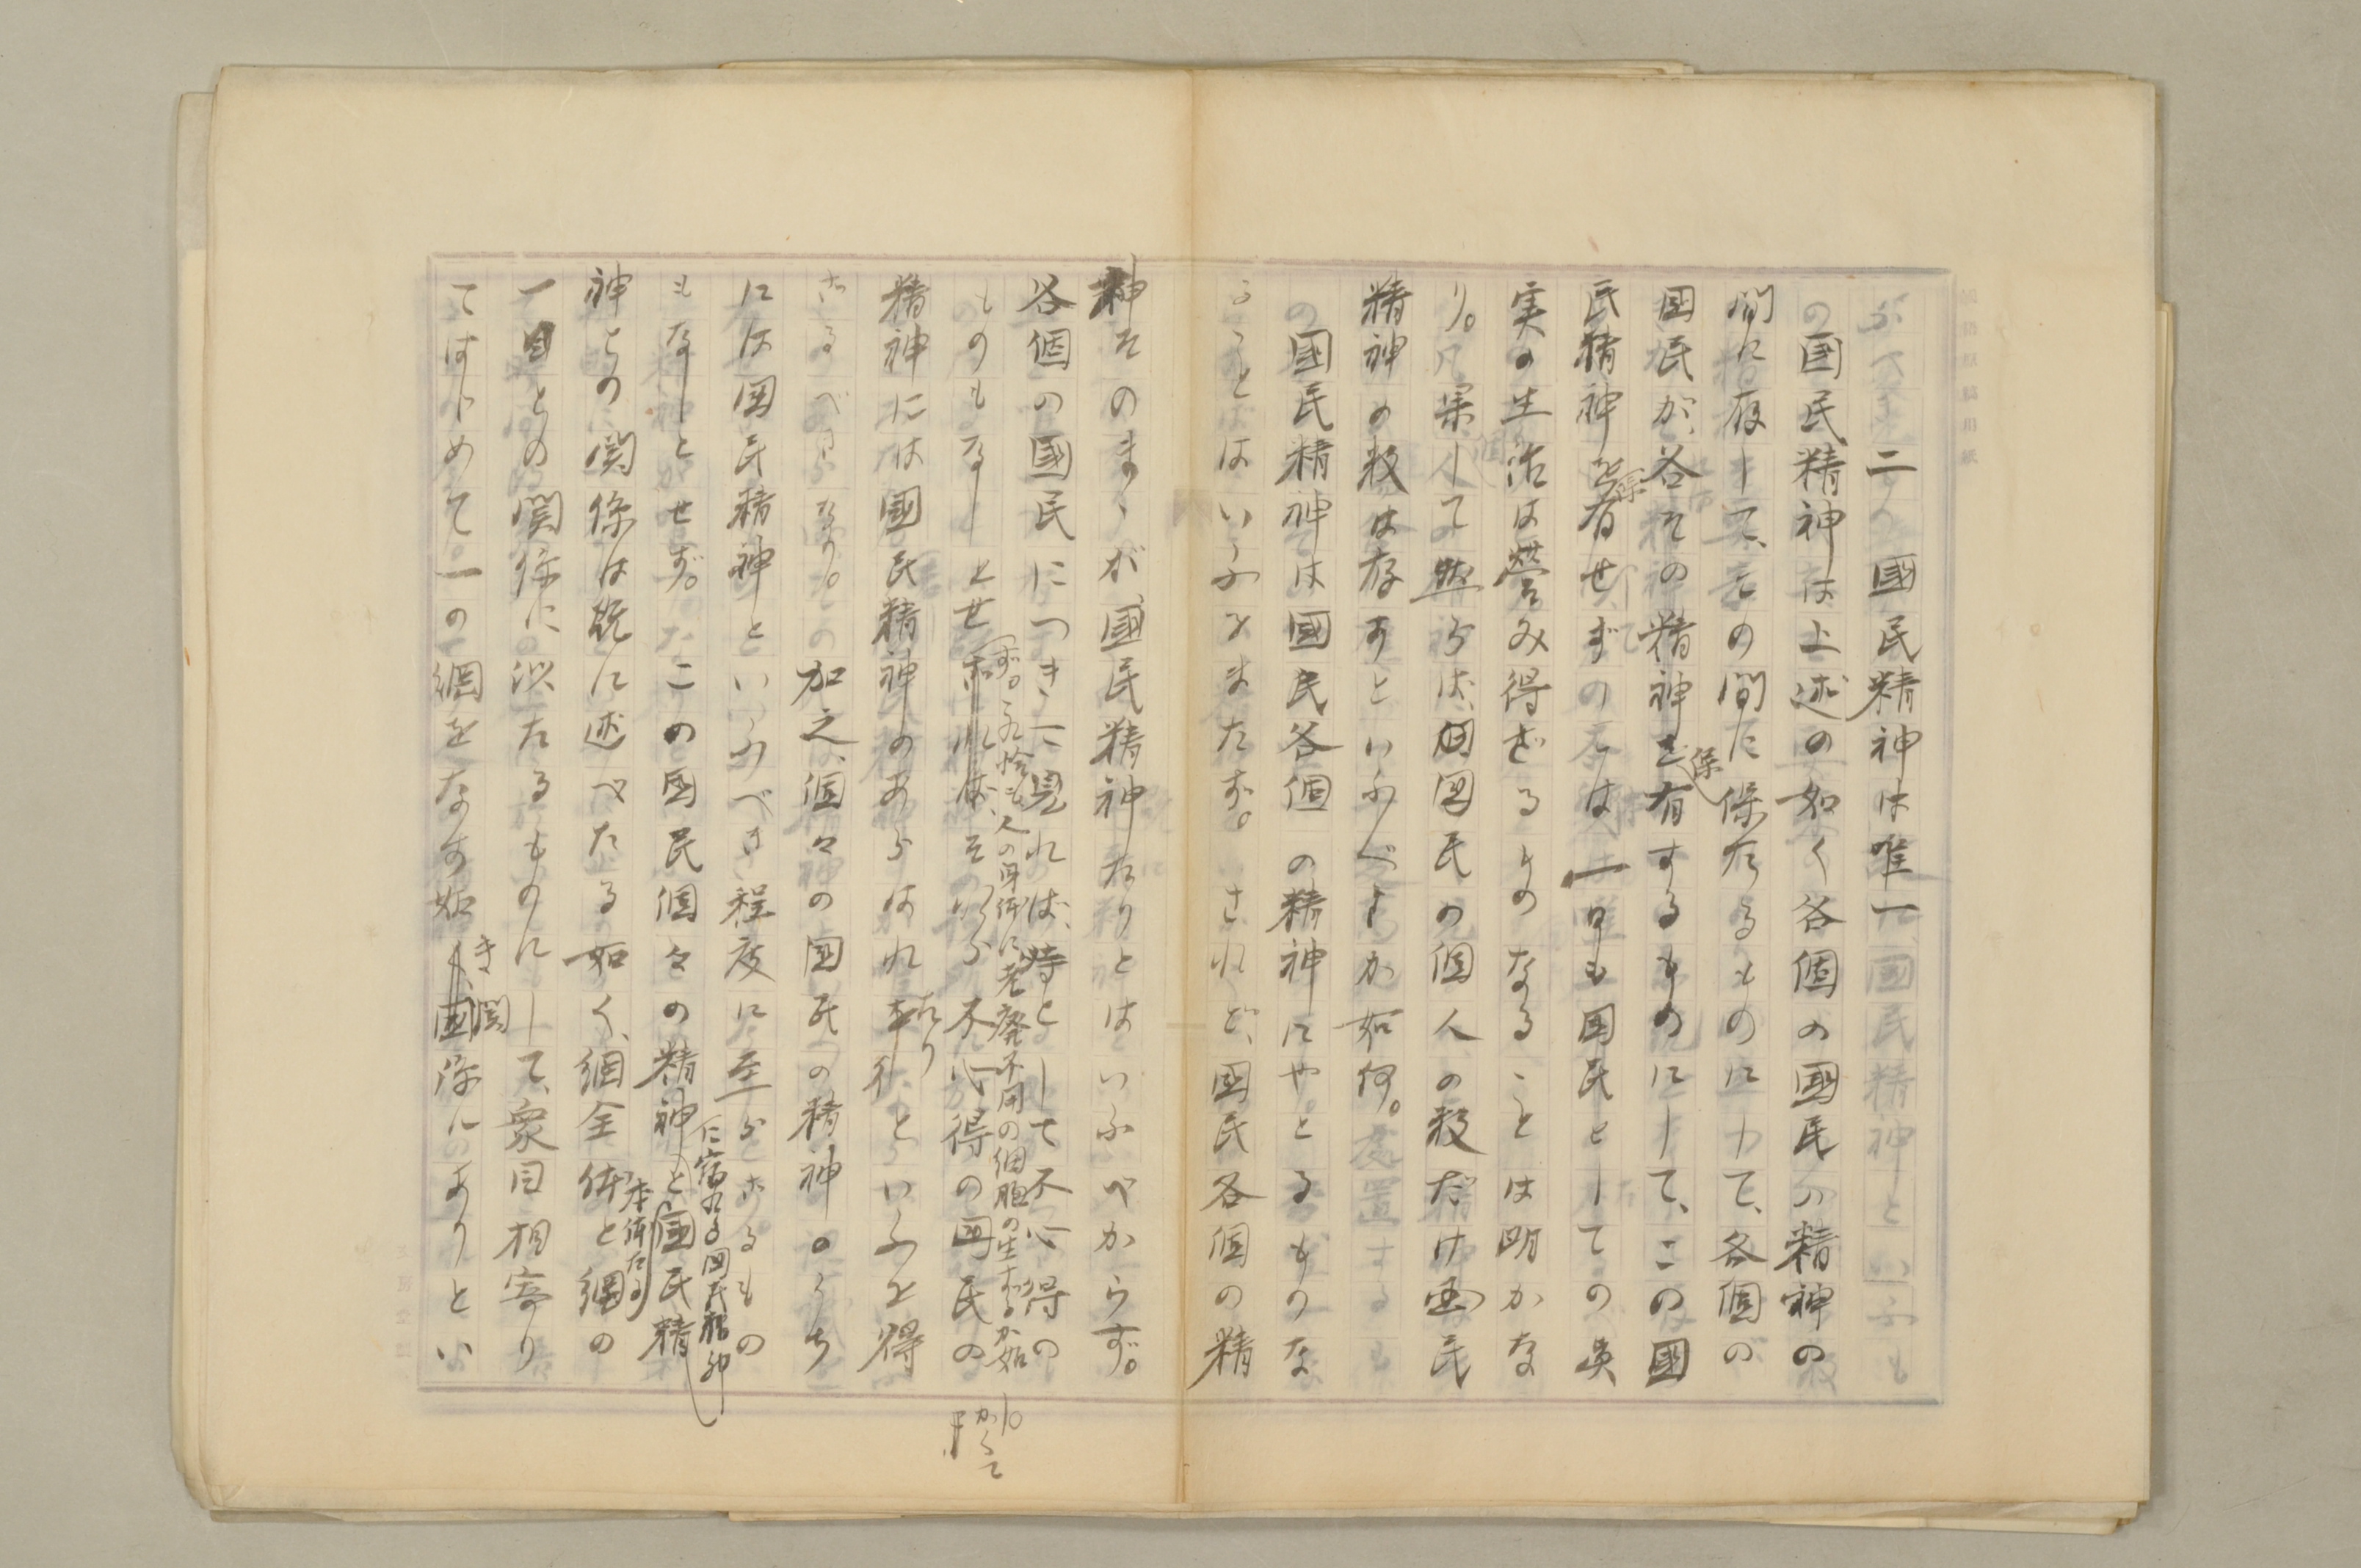 二　國民精神は唯一
國民精神は上述の如く各個の國民の精神の
間に存して、その間に保たるゝものにして、各個の
国民が、各その精神を保有するものにして、この國
民精神を保有せずのては一日も国民としての真
実の生活は營み得ざるものなることは明かな
り。果して然らば、国民の個人の数だけ国民
精神の数は存すといふべきか如何。
國民精神は國民各個の精神にやどるものな
ることはいふをまたず。されど、國民各個の精
神そのまゝが、國民精神なりとはいふべからず。
各個の國民につきて見れば、時として不心得の
ものもなしとせず。恰も人の身体に老廃不用の細胞の生ずるが如し。かくて
不心得の国民の
精神には國民精神のあらはれたりといふを得
ざるべきなり。加之、個々の国民の精神のうち
には国民精神といふべき程度に至らざるもの
もなしとせず。この国民個々の精神に宿れる国民精神と本体たる國民精
神との関係は既に述べたる如く、網全体と網の
一目との関係に似たるものにして、衆目相寄り
てはじめて一の網をなす如き関係にありとい